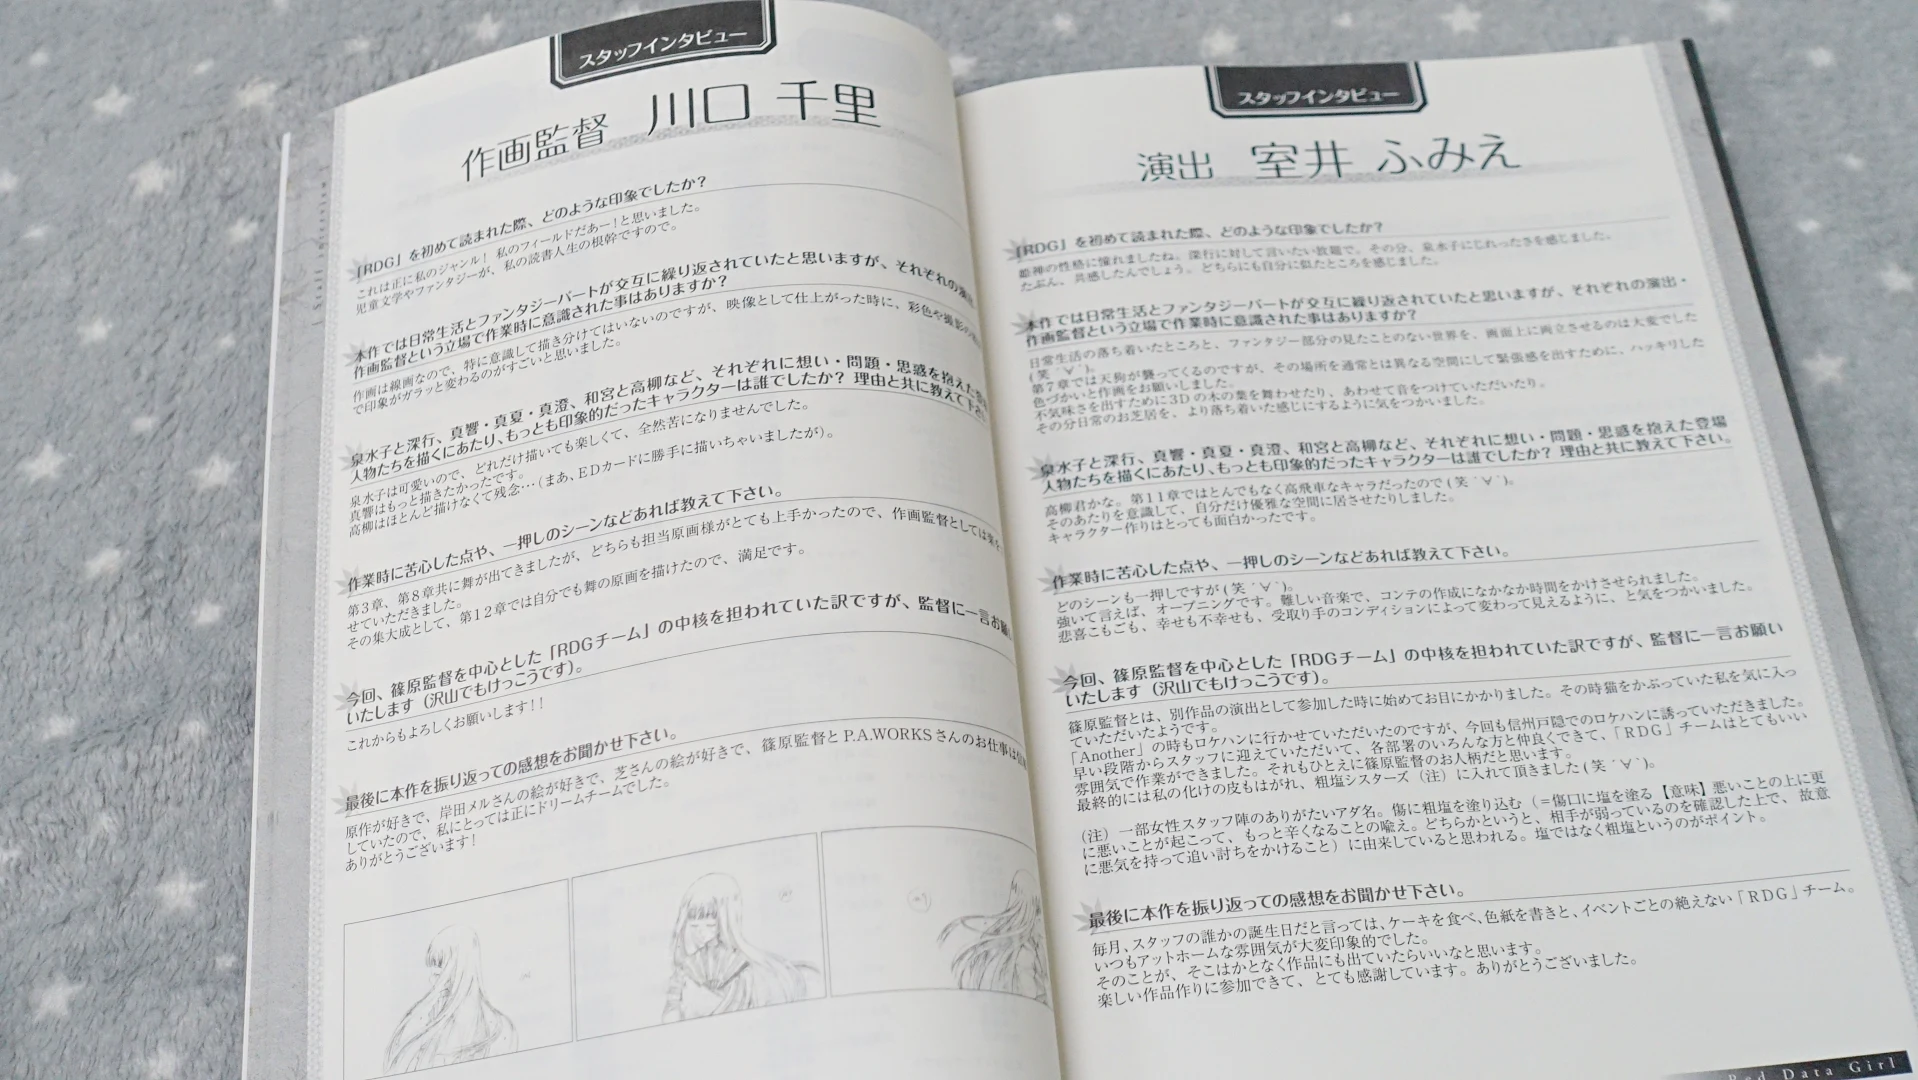 スタッフインタビュー
作画監督 川口 千里
「RDG」を初めて読まれた際、どのような印象でしたか?
これは正に私のジャンル! 私のフィールドだあー!と思いました。
児童文学やファンタジーが、私の読書人生の根幹ですので。
本作では日常生活とファンタジーパートが交互に繰り返されていたと思いますが、それぞれの演出・
作画監督という立場で作業時に意識された事はありますか?
作画は線画なので、特に意識して描き分けてはいないのですが、映像として仕上がった時に、彩色や撮影の
で印象がガラッと変わるのがすごいと思いました。
泉水子と深行、真響・真夏・真澄、和宮と高柳など、それぞれに想い・問題・思惑を抱えた登場
人物たちを描くにあたり、もっとも印象的だったキャラクターは誰でしたか? 理由と共に教えて下さい。
泉水子は可愛いので、どれだけ描いても楽しくて、全然苦になりませんでした。
真響はもっと描きたかったです。
高柳はほとんど描けなくて残念…(まあ、EDカードに勝手に描いちゃいましたが)。
作業時に苦心した点や、一押しのシーンなどあれば教えて下さい。
第3章、第8章共に舞が出てきましたが、どちらも担当原画様がとても上手かったので、作画監督としては楽を
せていただきました。
その集大成として、第12章では自分でも舞の原画を描けたので、満足です。
今回、篠原監督を中心とした「RDGチーム」の中核を担われていた訳ですが、監督に一言お願い
いたします(沢山でもけっこうです)。
これからもよろしくお願いします!!
最後に本作を振り返っての感想をお聞かせ下さい。
原作が好きで、岸田メルさんの絵が好きで、芝さんの絵が好きで、篠原監督とP.A.WORKSさんのお仕事は
していたので、私にとっては正にドリームチームでした。
ありがとうございます!
スタッフインタビュー
演出 室井 ふみえ
「RDG」を初めて読まれた際、どのような印象でしたか?
姫神の性格に憧れましたね。深行に対して言いたい放題で。その分、泉水子にじれったさを感じました。
たぶん、共感したんでしょう。どちらにも自分に似たところを感じました。
本作では日常生活とファンタジーパートが交互に繰り返されていたと思いますが、それぞれの演出・
作画監督という立場で作業時に意識された事はありますか?
日常生活の落ち着いたところと、ファンタジー部分の見たことのない世界を、画面上に両立させるのは大変でした
(笑 ´∀`)。
第7章では天狗が襲ってくるのですが、その場所を通常とは異なる空間にして緊張感を出すために、ハッキリした
色づかいと作画をお願いしました。
不気味さを出すために3Dの木の葉を舞わせたり、あわせて音をつけていただいたり。
その分日常のお芝居を、より落ち着いた感じにするように気をつかいました。
泉水子と深行、真響・真夏・真澄、和宮と高柳など、それぞれに想い・問題・思惑を抱えた登場
人物たちを描くにあたり、もっとも印象的だったキャラクターは誰でしたか? 理由と共に教えて下さい。
高柳君かな。第11章ではとんでもなく高飛車なキャラだったので(笑 ´∀`)。
そのあたりを意識して、自分だけ優雅な空間に居させたりしました。
キャラクター作りはとっても面白かったです。
作業時に苦心した点や、一押しのシーンなどあれば教えて下さい。
どのシーンも一押しですが(笑 ´∀`)。
強いて言えば、オープニングです。難しい音楽で、コンテの作成になかなか時間をかけさせられました。
悲喜こもごも、幸せも不幸せも、受取り手のコンディションによって変わって見えるように、と気をつかいました。
今回、篠原監督を中心とした「RDGチーム」の中核を担われていた訳ですが、監督に一言お願い
いたします(沢山でもけっこうです)。
篠原監督とは、別作品の演出として参加した時に始めてお目にかかりました。その時猫をかぶっていた私を気に入っ
ていただいたようです。
「Another」の時もロケハンに行かせていただいたのですが、今回も信州戸隠でのロケハンに誘っていただきました。
早い段階からスタッフに迎えていただいて、各部署のいろんな方と仲良くできて、「RDG」チームはとてもいい
雰囲気で作業ができました。それもひとえに篠原監督のお人柄だと思います。
最終的には私の化けの皮もはがれ、粗塩シスターズ(注)に入れて頂きました(笑 ´∀`)。
(注)一部女性スタッフ陣のありがたいアダ名。傷に粗塩を塗り込む(=傷口に塩を塗る【意味】悪いことの上に更
に悪いことが起こって、もっと辛くなることの喩え。どちらかというと、相手が弱っているのを確認した上で、故意
に悪気を持って追い討ちをかけること)に由来していると思われる。塩ではなく粗塩というのがポイント。
最後に本作を振り返っての感想をお聞かせ下さい。
毎月、スタッフの誰かの誕生日だと言っては、ケーキを食べ、色紙を書きと、イベントごとの絶えない「RDG」チーム。
いつもアットホームな雰囲気が大変印象的でした。
そのことが、そこはかとなく作品にも出ていたらいいなと思います。
楽しい作品作りに参加できて、とても感謝しています。ありがとうございました。
Red Data Girl